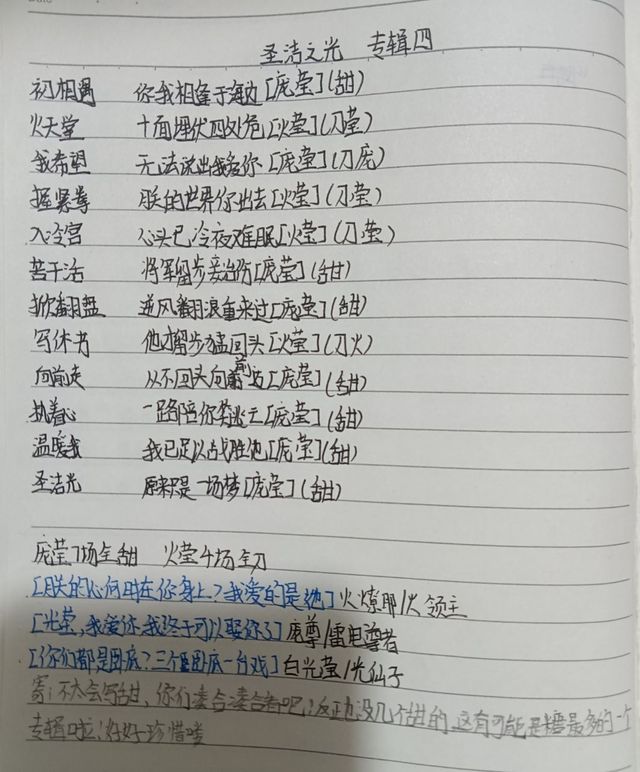 圣洁之光 专辑四
初相遇 你我相逢于海边[庞莹](甜)
火天堂 十面埋伏四处危[火莹](刀莹)
我希望 无法说出我爱你[庞莹](刀庞)
握紧拳 朕的世界你出去[火莹](刀莹)
入冷宫 心头已冷夜难眠[火莹](刀莹)
苦干活 将军留步妾治伤[庞莹](甜)
掀翻盘 逆风翻浪重来过[庞莹](甜)
写休书 他才留步猛回头[火莹](刀火)
向前走 从不回头向前边[庞莹](甜)
执着心 一路陪你类逃亡[庞莹](甜)
温暖我 我已足以战胜他[庞莹](甜)
圣洁光 原来只是一场梦[庞莹](甜)
庞莹7场全甜 火莹4场全刀
[朕的心何时在你身上?我爱的是她]火燎耶/火领主
[光莹,我爱你,我终于可以娶你了]庞尊/雷电尊者
[你们都是卧底?三个卧底一台戏]白光莹/光仙子
寄:不太会写甜,你们凑合凑合看吧!反正也没几个甜的,这有可能是糖最多的一个
专辑啦!好好珍惜喽